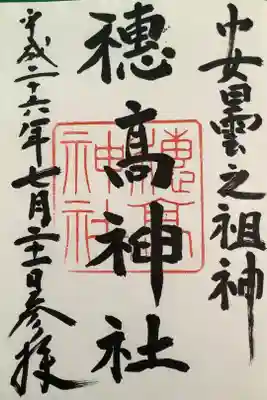 安曇之祖神
穗高神社
平成二十六年七月二十一日参拝
穗高神社